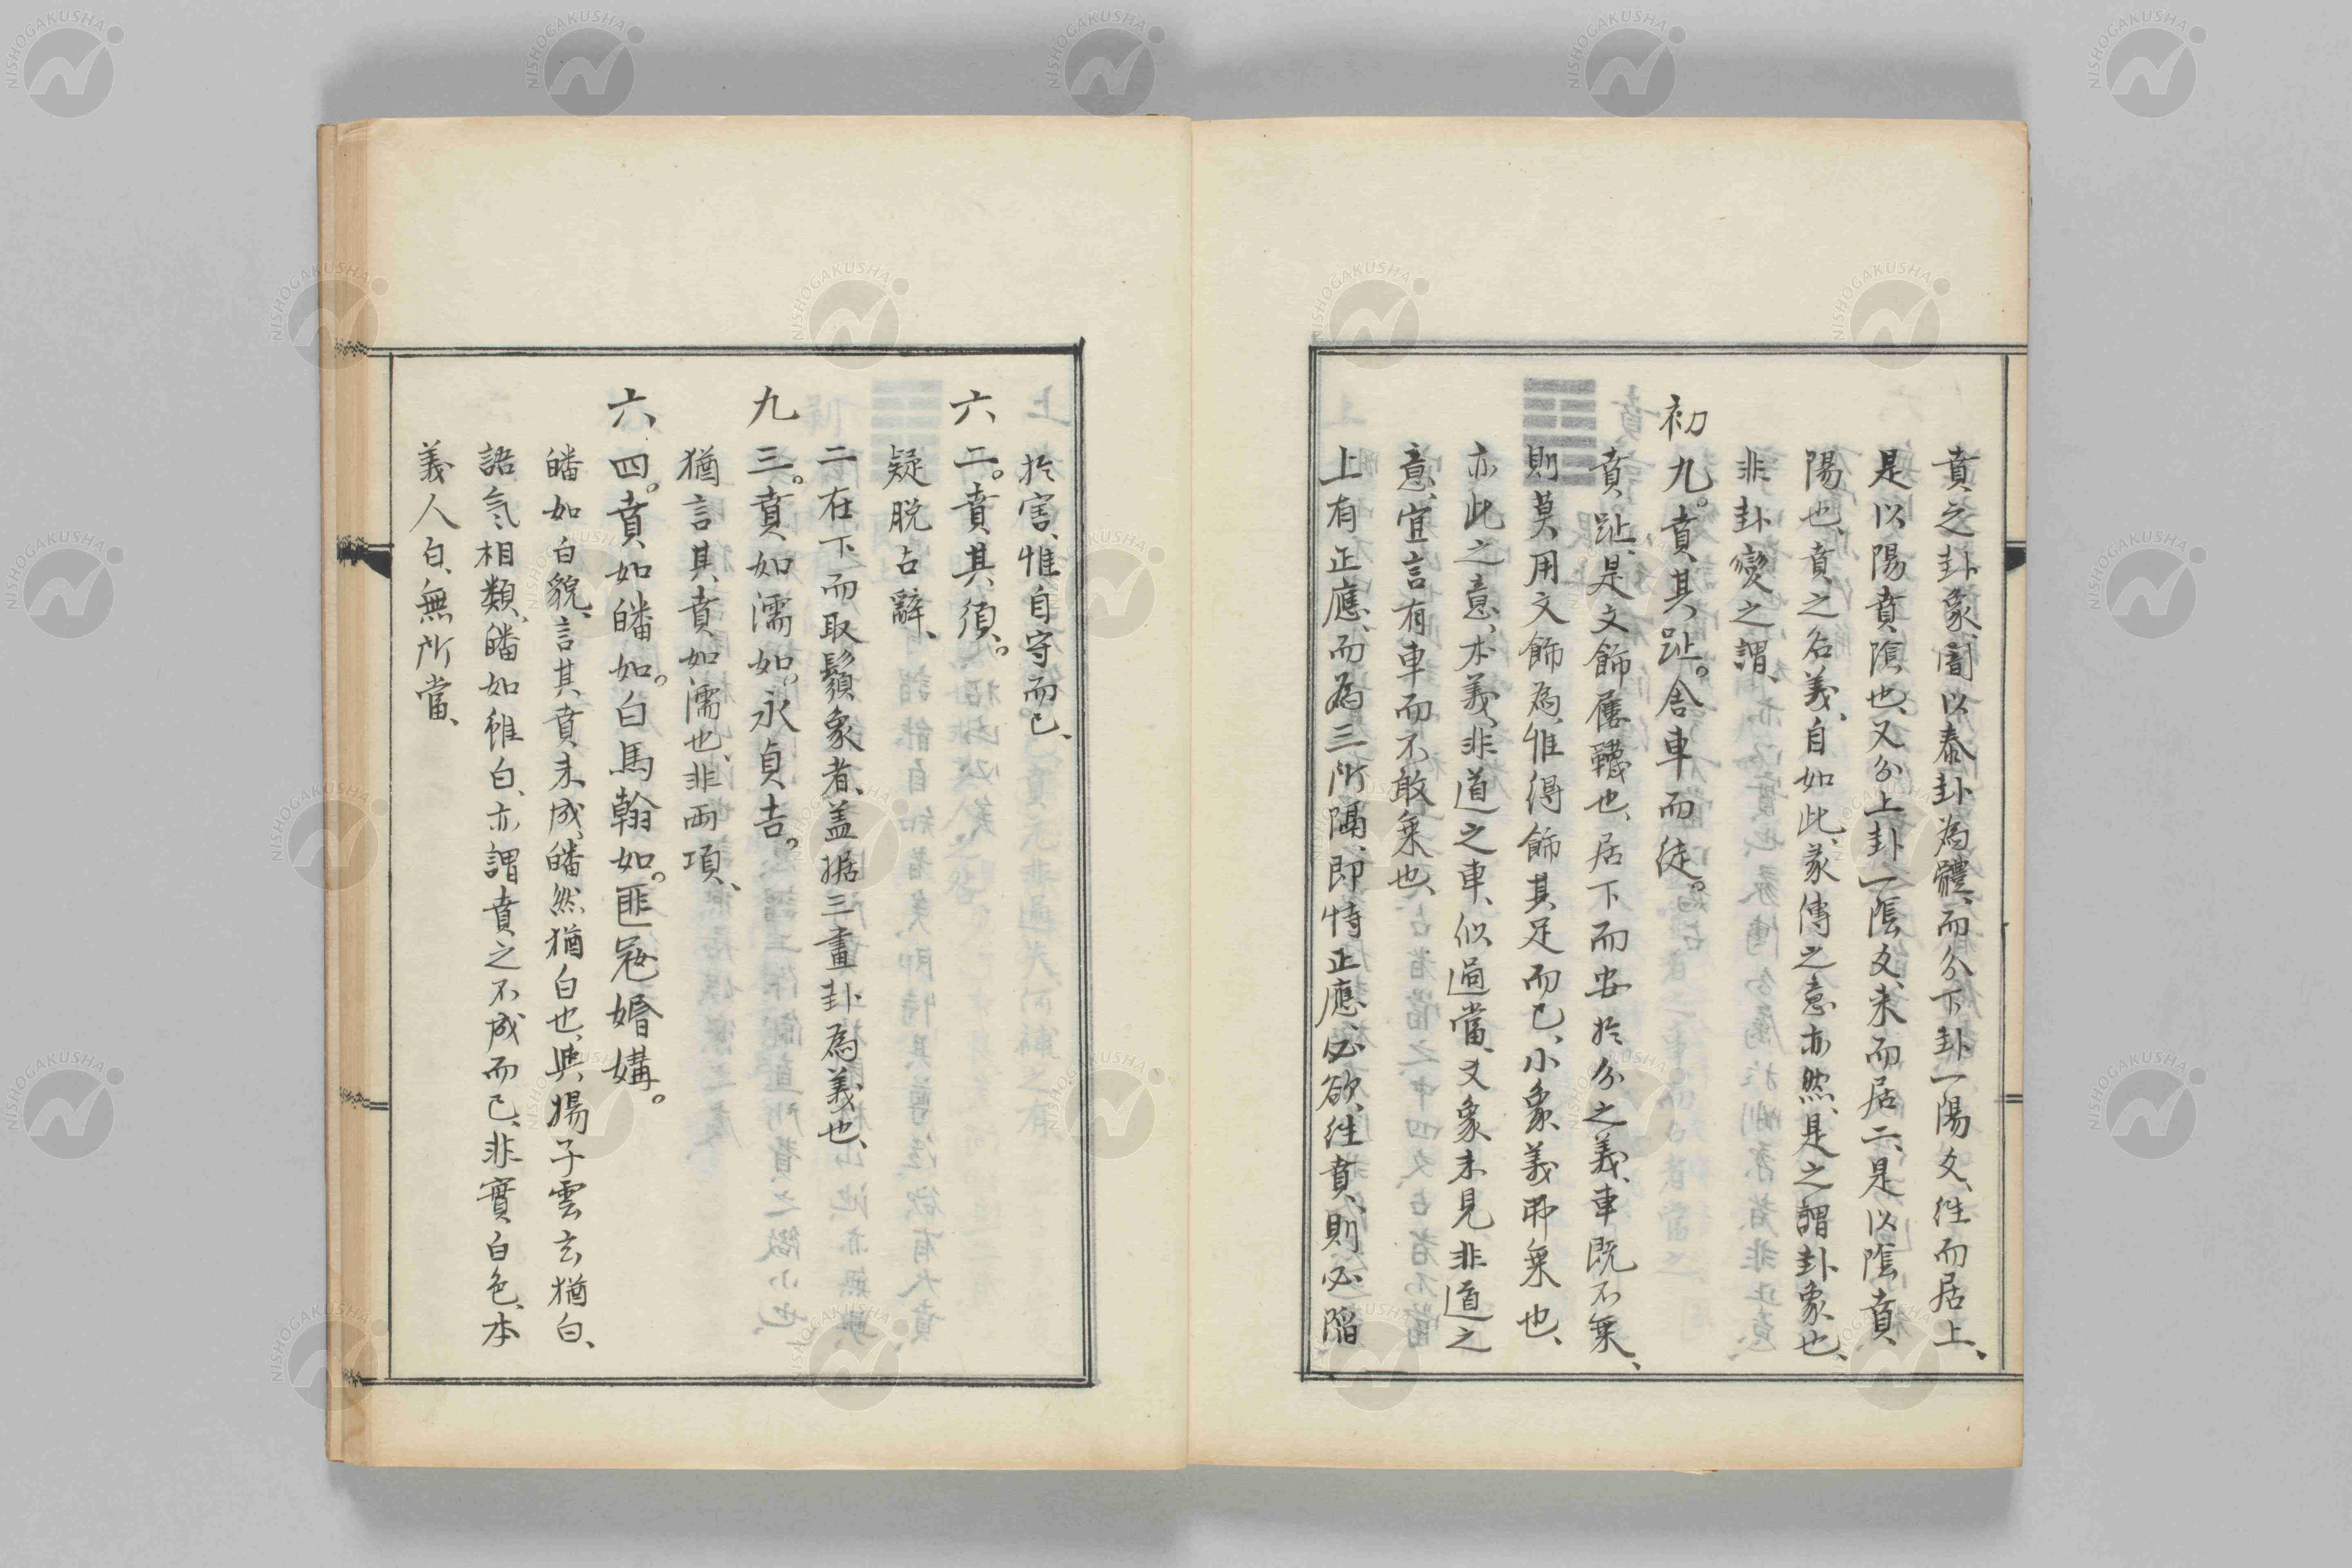 賁之卦象、閣以泰卦為體、而分下卦一陽爻、往而居上、
是以陽賁陰也、又分上卦一陰爻、来而居二、是以陰賁
陽也、賁之名義、自如此、彖傳之意亦然、是之謂卦象也、
非卦變之謂、
初九。賁其趾。舍車而徒。
賁趾、是文飾屨韈也、居下而安於分之義、車既不乗、
則莫用文飾為、惟得飾其足而已、小象義弗乗也、
亦此之意、本義、非道之車、似過當、爻象未見非道之
意、宜言有車而不敢乗也、
上有正應、而為三所隔、即恃正應、必欲往賁、則必陷
於害、惟自守而已、
六二。賁其須。
疑脱占辭、
二在下而取鬚象者、盖據三畫卦為義也、
九三。賁如濡如。永貞吉。
猶言其賁如濡也、非兩項、
六四。賁如皤如。白馬翰如。匪寇婚媾。
皤如白貌、言其賁未成、皤然猶白也、與揚子雲玄猶白、
語氣相類、皤如雖白、亦謂賁之不成而已、非實白色、本
義人白、無所當、